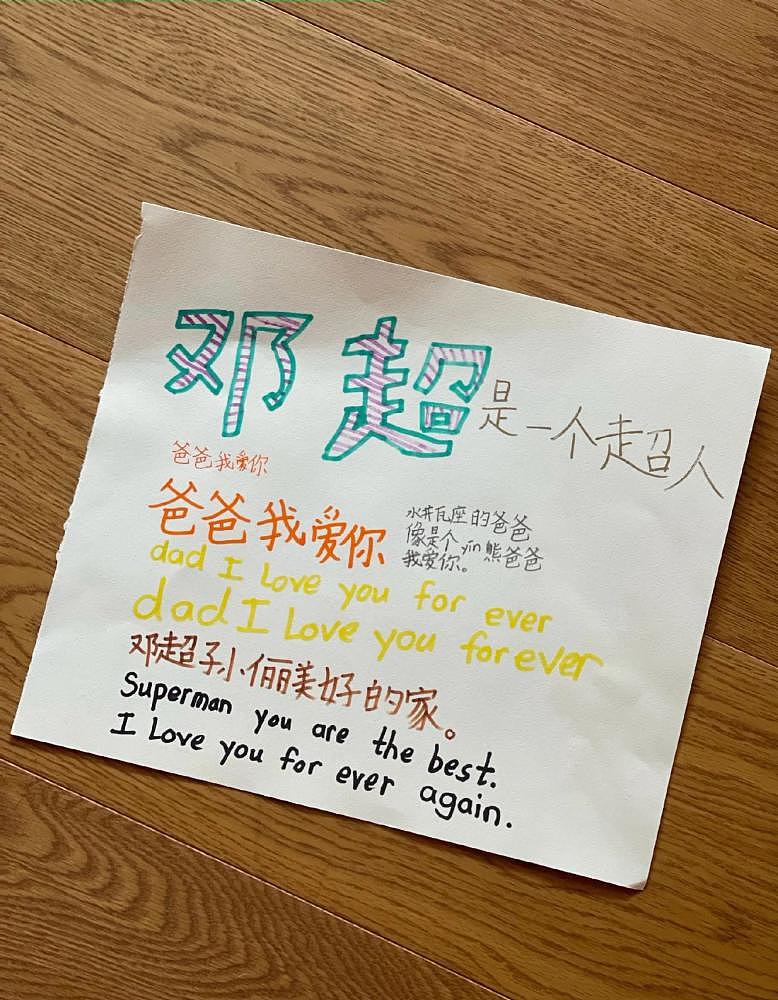 邓超是一个超人
爸爸我爱你
爸爸我爱你
水井瓦座的爸爸
像是个yin熊爸爸
我爱你。
dad I Love you for ever
dad I Love you forever
邓超孑小俪美好的家。
Superman you are the best.
I Love you for ever again.